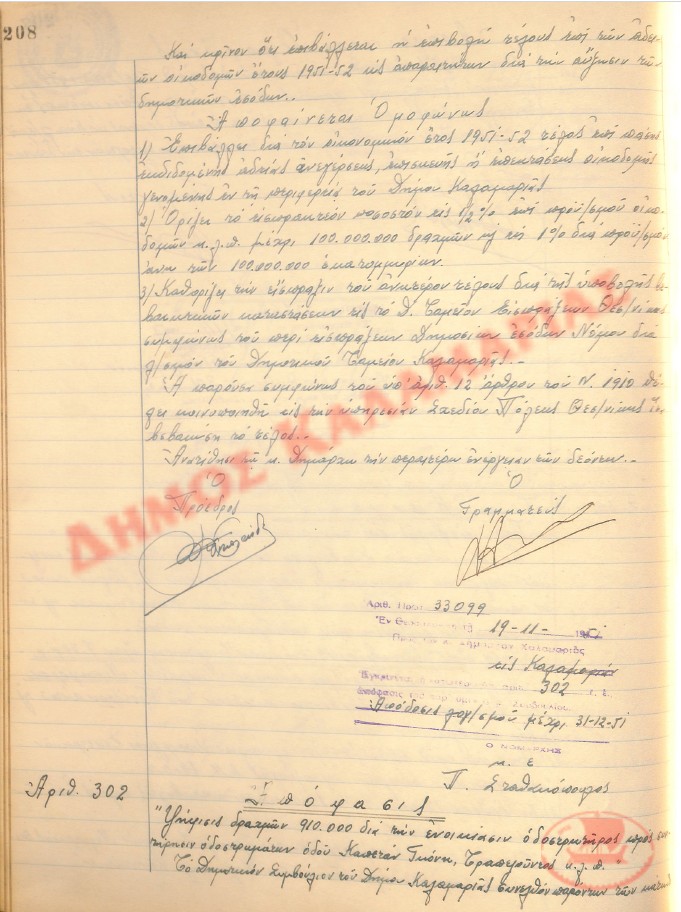 208
Καὶ κρίνον ὅτι ἐπιβάλλεται ἡ ἐπιβολὴ τέλους ἐπὶ τῶν ἀδει-
ῶν οἰκοδομῶν ἔτους 1951-52 ὡς ἀπαραίτητον διὰ τὴν αὔξησιν τῶν
δημοτικῶν ἐσόδων..
Ἀποφαίνεται Ὁμοφώνως
1) Ἐπιβάλλει διὰ τὸν οἰκονομικὸν ἔτος 1951-52 τέλος ἐπὶ πάσης
ἐκδιδομένης ἀδείας ἀνεγέρσεως, ἐπισκευῆς ἢ ἐπεκτάσεως οἰκοδομῆς
γενομένης ἐν τῇ περιφερείᾳ τοῦ Δήμου Καλαμαριᾶς
2) Ὁρίζει τὸ εἰσπρακτέον ποσοστὸν εἰς 1/2% ἐπὶ προϋ/σμοῦ οἰκο-
δομῶν κ.λ.π. μέχρι 100.000.000 δραχμῶν καὶ εἰς 1% διὰ προϋ/σμὸν
ἄνω τῶν 100.000.000 ἑκατομμυρίων.
3) Καθορίζει τὴν εἴσπραξιν τοῦ ἀνωτέρου τέλους διὰ τῆς ὑποβολῆς βε-
βαιωτικῶν καταστάσεων εἰς τὸ Δ. Ταμεῖον Εἰσπράξεων Θεσ/νίκης
συμφώνως τοῦ περὶ εἰσπράξεων Δημοσίων ἐσόδων Νόμου διὰ
λ/σμὸν τοῦ Δημοτικοῦ Ταμείου Καλαμαριᾶς..
Ἡ παροῦσα συμφώνως τοῦ ὑπ' ἀριθ. 12 ἄρθρου τοῦ Ν. 1910 θέ-
λει κοινοποιηθῇ εἰς τὴν ὑπηρεσίαν Σχεδίου Πόλεως Θεσ/νίκης
βεβαιώσῃ τὸ τέλος..
Ἀνατίθησι τῷ κ. Δημάρχῳ τὴν περαιτέρω ἐνέργειαν τῶν δεόντων..
Ὁ Ὁ
Πρόεδρος Γραμματεὺς
ΔΗΜΟΣ ΚΑΛΑΜΑΡΙΑΣ
Ἀριθ. Πρωτ. 33099
Ἐν 19-11- 1951
Πρὸς τὸν κ. Δήμαρχον Καλαμαριᾶς
εἰς Καλαμαριὰν
302
Ἀπόδοσις λογ/σμοῦ μέχρι 31-12-51
Ὁ ΝΟΜΑΡΧΗΣ
κ. ε.
Π. Σταθακόπουλος
Ἀριθ. 302
Ἀπόφασις
"Ψήφισις δραχμῶν 910.000 διὰ τὴν ἐνοικίασιν ὁδοστρωτῆρος πρὸς συν-
τήρησιν ὁδοστρωμάτων ὁδοῦ Καπετὰν Γκόνη, Τραπεζοῦντος κ.λ.π."
Τὸ Δημοτικὸν Συμβούλιον τοῦ Δήμου Καλαμαριᾶς συνελθὸν παρόντων τῶν